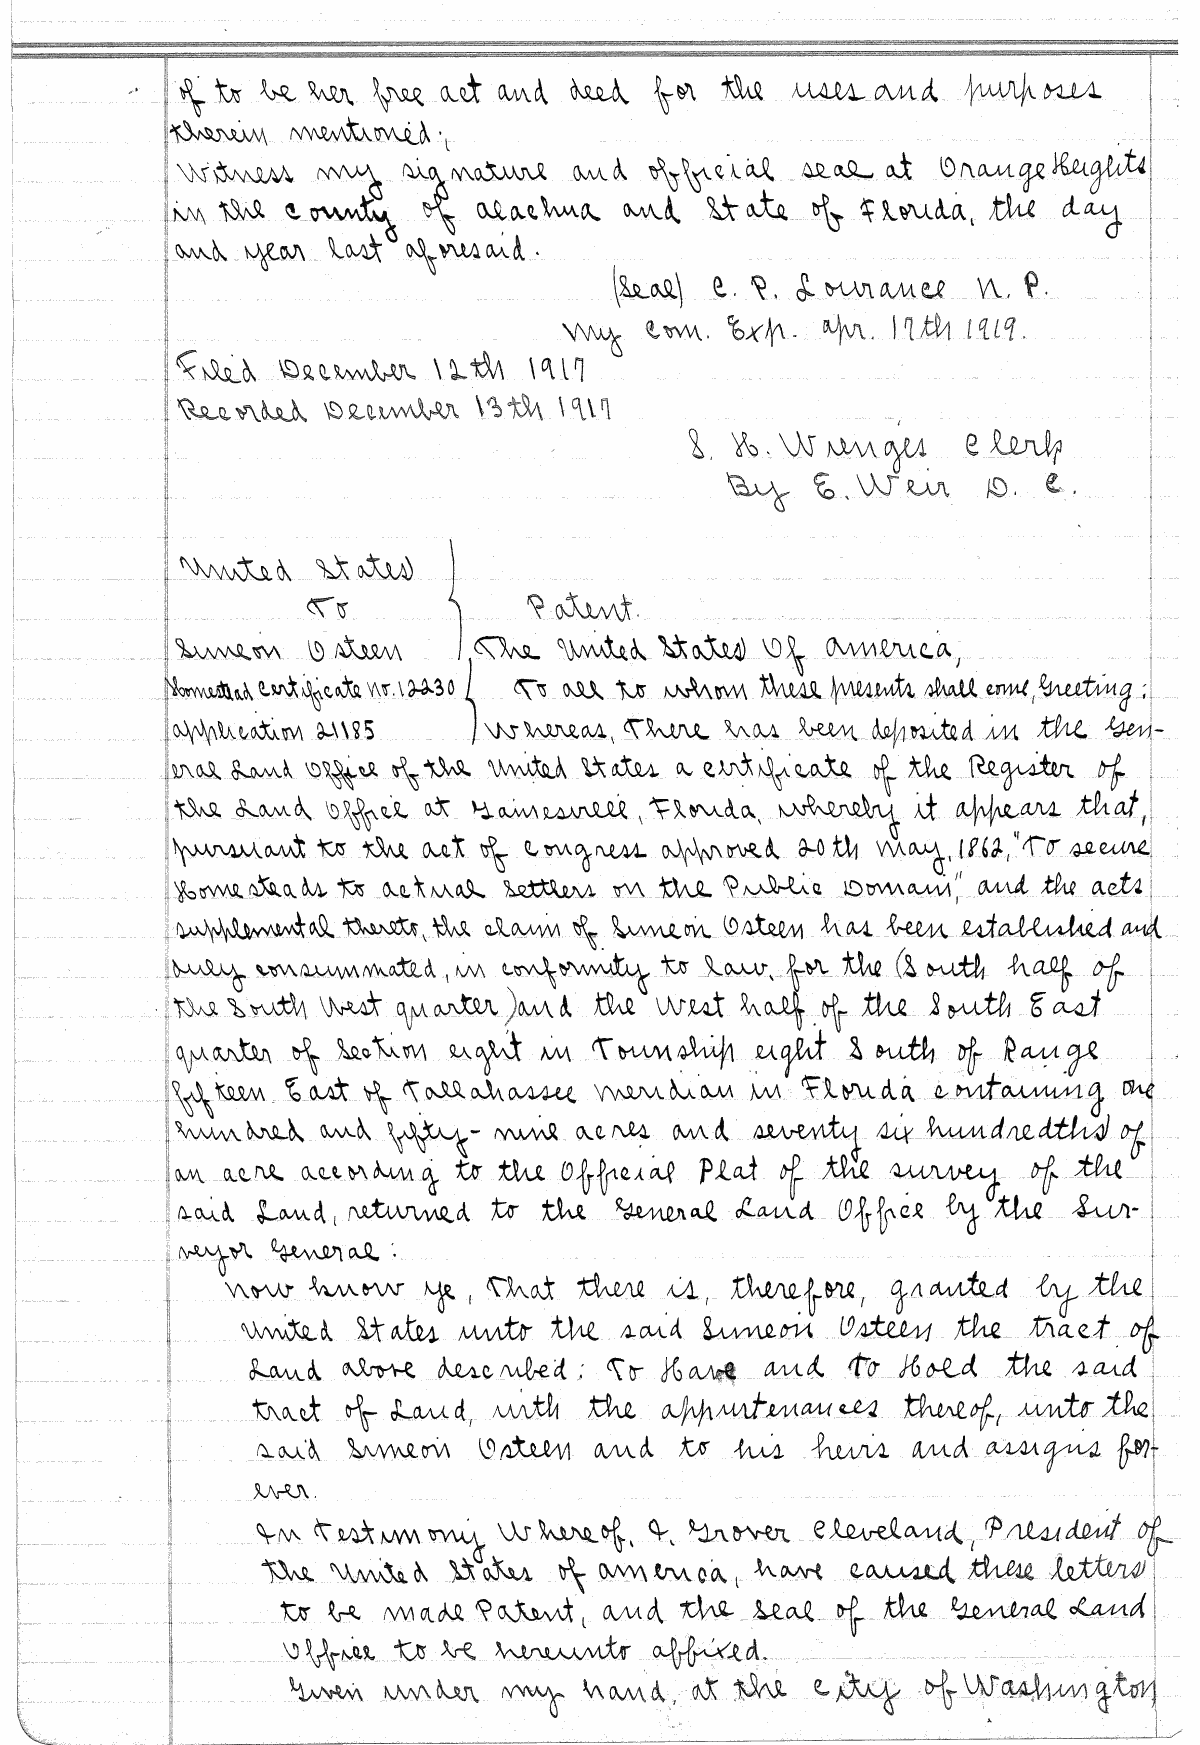 of to be her free act and deed for the uses and purposes
therein mentioned;
Witness my signature and official seal at Orange Heights
in the County of Alachua and State of Florida, the day
and year last aforesaid.
(Seal) C. P. Lourance N. P.
My Com. Exp. Apr. 17th 1919.
Filed December 12th 1917
Recorded December 13th 1917
S. H. Wienges Clerk
By E. Weir D. C.
United States
To
Patent.
Simeon Osteen
The United States Of America,
Homestead Certificate No. 12230
To all to whom these presents shall come, Greeting:
Application 21185
Whereas, There has been deposited in the Gen-
eral Land Office of the United States a certificate of the Register of
the Land Office at Gainesville, Florida, whereby it appears that,
pursuant to the act of Congress approved 20th May, 1862, "To secure
Homesteads to actual Settlers on the Public Domain," and the acts
supplemental thereto, the claim of Simeon Osteen has been established and
duly consummated, in conformity to law, for the (South half of
the South West quarter) and the West half of the South East
quarter of Section eight in Township eight South of Range
fifteen East of Tallahassee Meridian in Florida containing one
hundred and fifty-nine acres and seventy six hundredths of
an acre according to the Official Plat of the survey of the
said Land, returned to the General Land Office by the Sur-
veyor General:
Now know ye, That there is, therefore, granted by the
United States unto the said Simeon Osteen the tract of
Land above described; To Have and To Hold the said
tract of Land, with the appurtenances thereof, unto the
said Simeon Osteen and to his heirs and assigns for-
ever.
In Testimony Whereof, I, Grover Cleveland, President of
the United States of America, have caused these letters
to be made Patent, and the Seal of the General Land
Office to be hereunto affixed.
Given under my hand, at the City of Washington